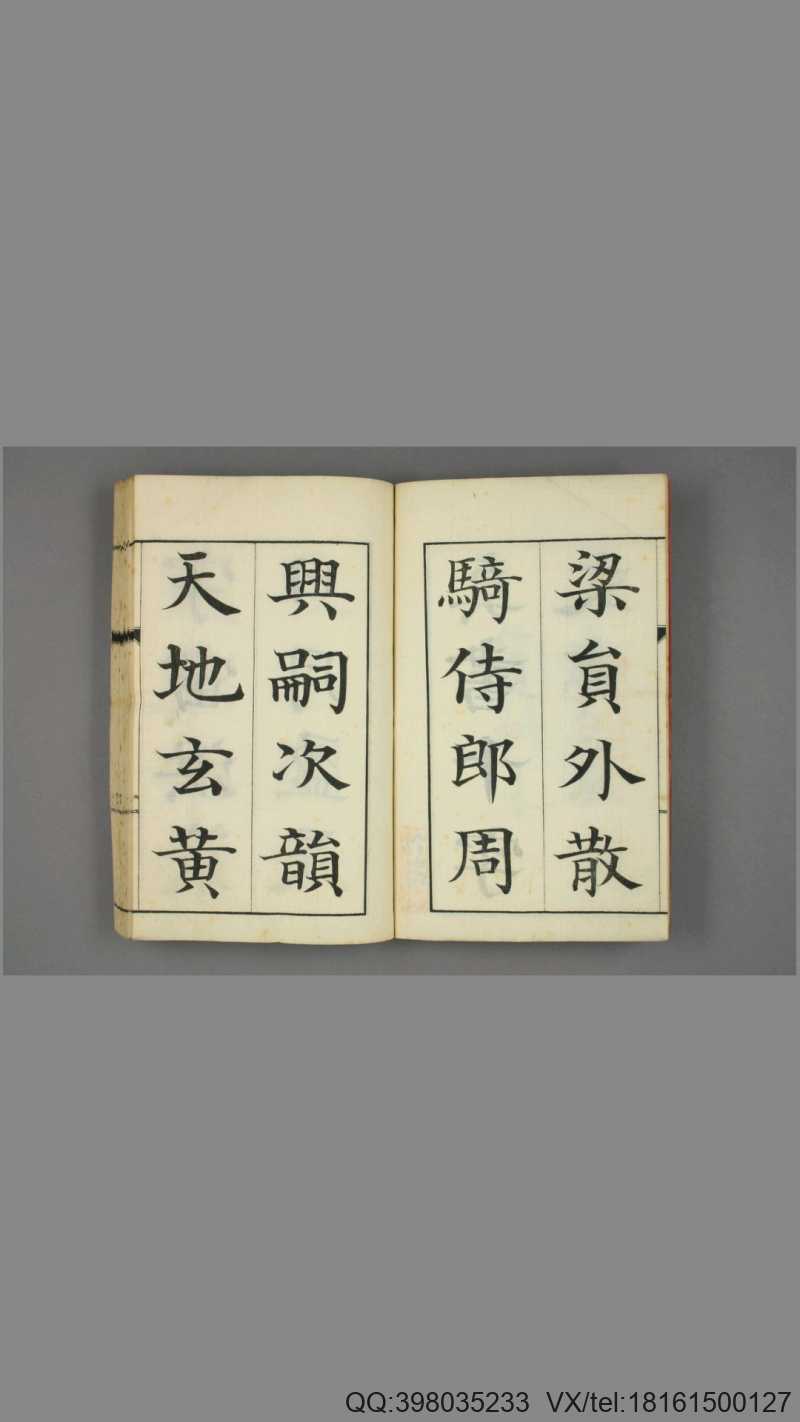 梁貟外散
騎侍郎周
興嗣次韻
天地玄黃
QQ:398035233 VX/tel:18161500127